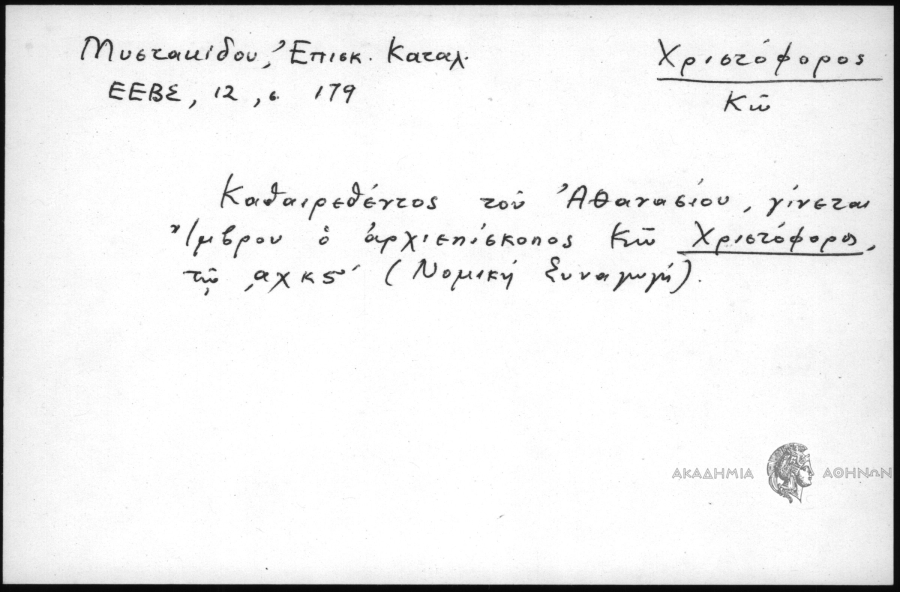 Μυστακίδου, Ἐπισκ. Καταλ.
ΕΕΒΣ, 12, σ. 179
Χριστόφορος
Κῶ
Καθαιρεθέντος τοῦ Ἀθανασίου, γίνεται
Ἴμβρου ὁ ἀρχιεπίσκοπος Κῶ Χριστόφορος,
τῷ ͵αχκς΄ (Νομική Συναγωγή).
ΑΚΑΔΗΜΙΑ ΑΘΗΝΩΝ